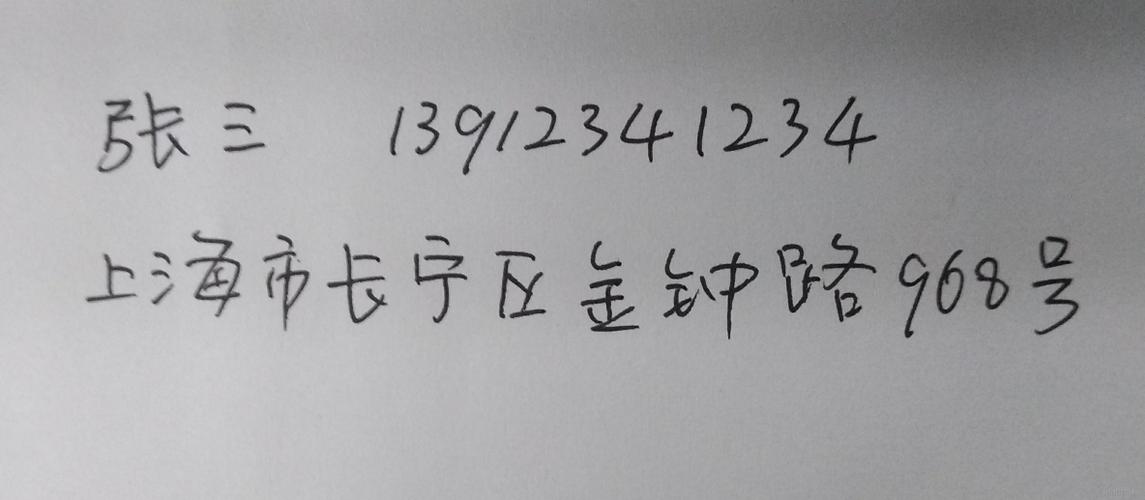 张三 13912341234
上海市长宁区金钟路968号